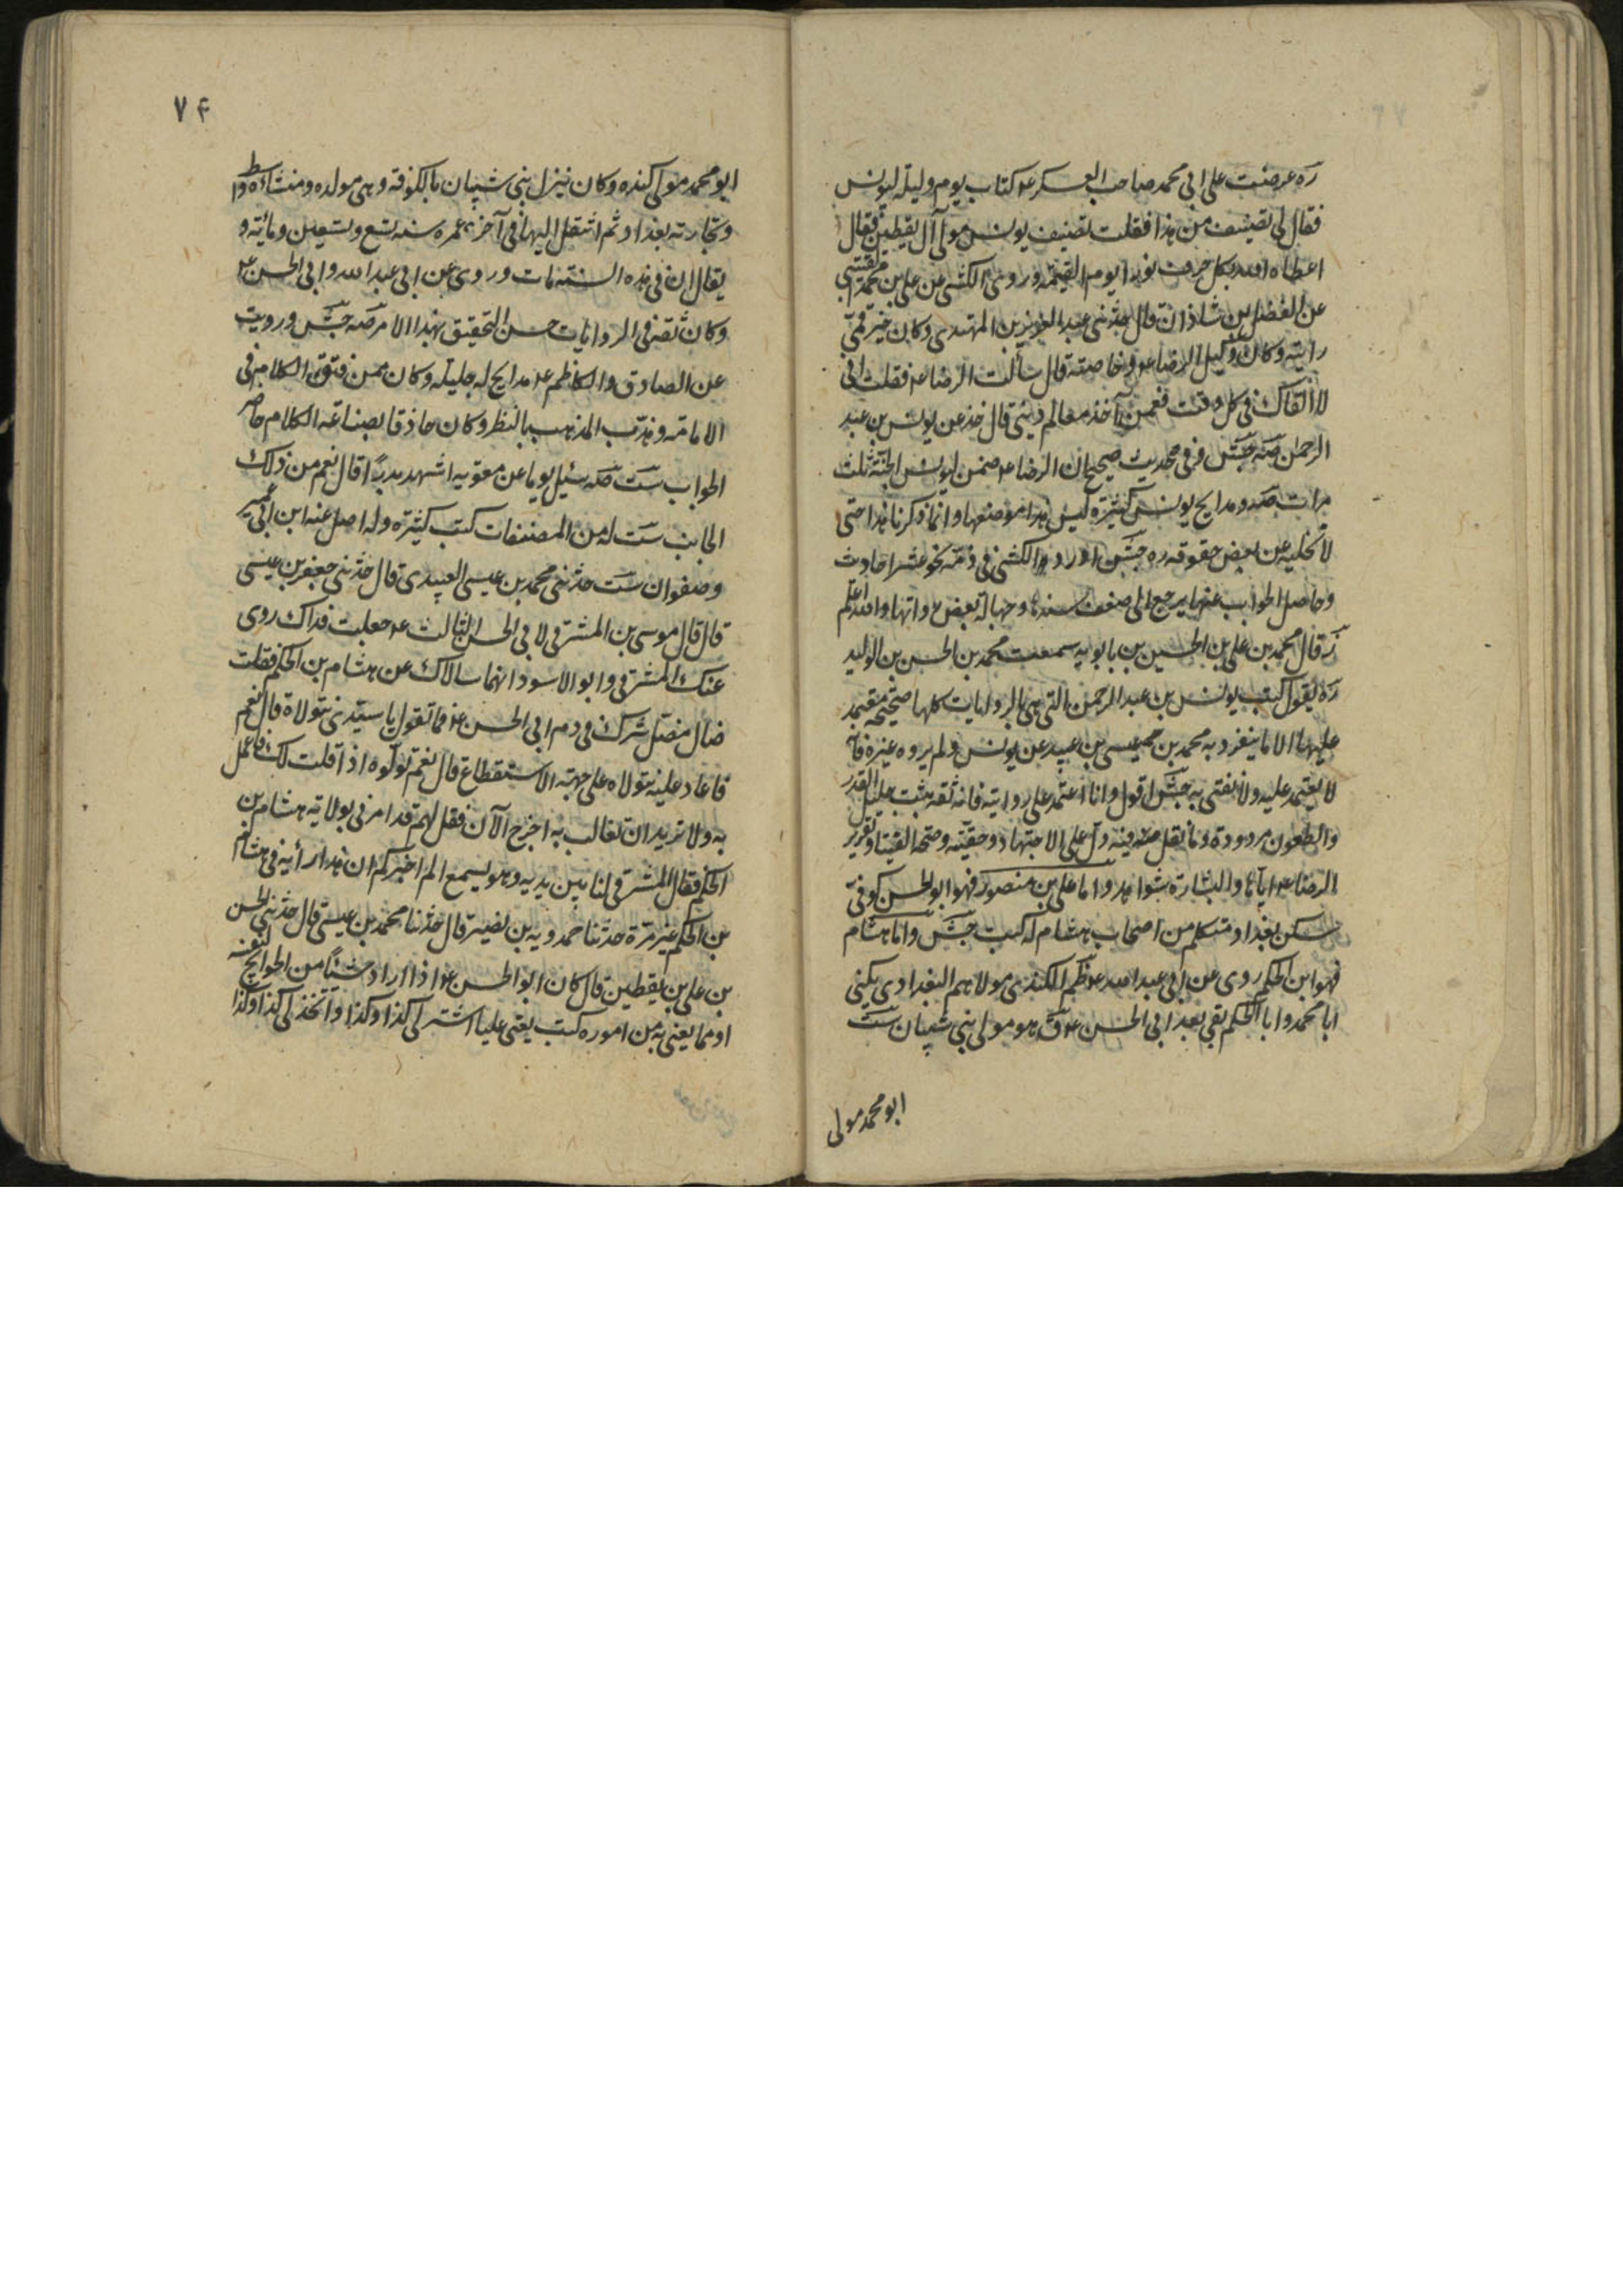 ره عرضت على ابى محمد صاحب العسكر ع كتاب يوم وليله ليونس
فقال لى تصنيف من هذا فقلت تصنيف يونس مولى آل يقطين فقال
اعطاه الله بكل حرف نورا يوم القيمة وروى الكشى عن على بن محمد القتيبى
عن الفضل بن شاذان قال حدثنى عبد العزيز بن المهتدى وكان خير قمى
رايته وكان وكيل الرضا ع وخاصته قال سألت الرضا ع فقلت انى
لا القاك فى كل وقت فعمن آخذ معالم دينى قال خذ عن يونس بن عبد
الرحمن صه جش وفى حديث صحيح ان الرضا ع ضمن ليونس الجنة ثلث
مرات صه ومدايح يونس كثيرة ليس هذا موضعها وانما ذكرنا هذا حتى
لا نخليه عن بعض حقوقه ره جش اورد الكشى فى ذمه نحو عشرا حاديث
وحاصل الجواب عنها يرجع الى ضعف سنده وجهالة بعض رواتها والله اعلم
ز قال محمد بن على بن الحسين بن بابويه سمعت محمد بن الحسن بن الوليد
ره يقول كتب يونس بن عبد الرحمن التى هى بالروايات كلها صحيحه معتمد
عليها الا ما ينفرد به محمد بن عيسى بن عبيد عن يونس ولم يروه غيره فانه
لا يعتمد عليه ولا يفتى به جش اقول وانا اعتمد على روايته فانه ثقه ثبت جليل القدر
والطعون مردودة وما نقل منه دل على الاجتهاد وحقيته وصحة الفتيا وتقرير
الرضا ع اياها والبشارة شواهد واما على بن منصور فهو ابو الحسن كوفى
سكن بغداد متكلم من اصحاب هشام له كتب جش واما هشام
فهو ابن الحكم روى عن ابى عبد الله ع ظم الكندى مولاهم البغدادى يكنى
ابا محمد وابا الحكم بقى بعد ابى الحسن ع ق هو مولى بنى شيبان ست
ابو محمد مولى
٧٤
ابو محمد مولى كنده وكان ينزل بنى شيبان بالكوفه وهى مولده ومنشاؤه واسط
وتجارته بغداد ثم انتقل اليها فى آخر عمره سنه تسع وتسعين ومائة و
يقال ان فى هذه السنة مات وروى عن ابى عبد الله وابى الحسن ع
وكان ثقة فى الروايات حسن التحقيق بهذا الامر صه جش ورويت
عن الصادق والكاظم ع مدايح له جليله وكان ممن فتق الكلام فى
الامامه وهذب المذهب بالنظر وكان حاذقا بصناعة الكلام حاضر
الجواب ست صه سئل يوما عن معويه اشهد بدرا قال نعم من ذلك
الجانب ست له من المصنفات كتب كثيره وله اصل عنه ابن ابى عمير
وصفوان ست حدثنى محمد بن عيسى العبيدى قال حدثنى جعفر بن عيسى
قال قال موسى بن المشرقى لابى الحسن الثالث ع جعلت فداك روى
عنك المشرقى وابو الاسود انهما سالاك عن هشام بن الحكم فقلت
ضال مضل شرك فى دم ابى الحسن ع فما تقول يا سيدى نتولاه قال نعم
فاعاد عليه نتولاه على جهة الاستقطاع قال نعم تولوه اذا قلت لك فاعمل
به ولا تريد ان تغالب به اخرج الآن فقل لهم قد امرنى بولاية هشام بن
الحكم فقال المشرقى لنا بين يديه وهو يسمع الم اخبركم ان هذا رأيه فى هشام
بن الحكم غير مرة حدثنا حمدويه بن نصير قال حدثنا محمد بن عيسى قال حدثنى الحسن
بن على بن يقطين قال كان ابو الحسن ع اذا اراد شيئا من الحوايج لنفسه
او مما يعنى به من اموره كتب يعنى عليا اشتر لى كذا وكذا واتخذ لى كذا وكذا